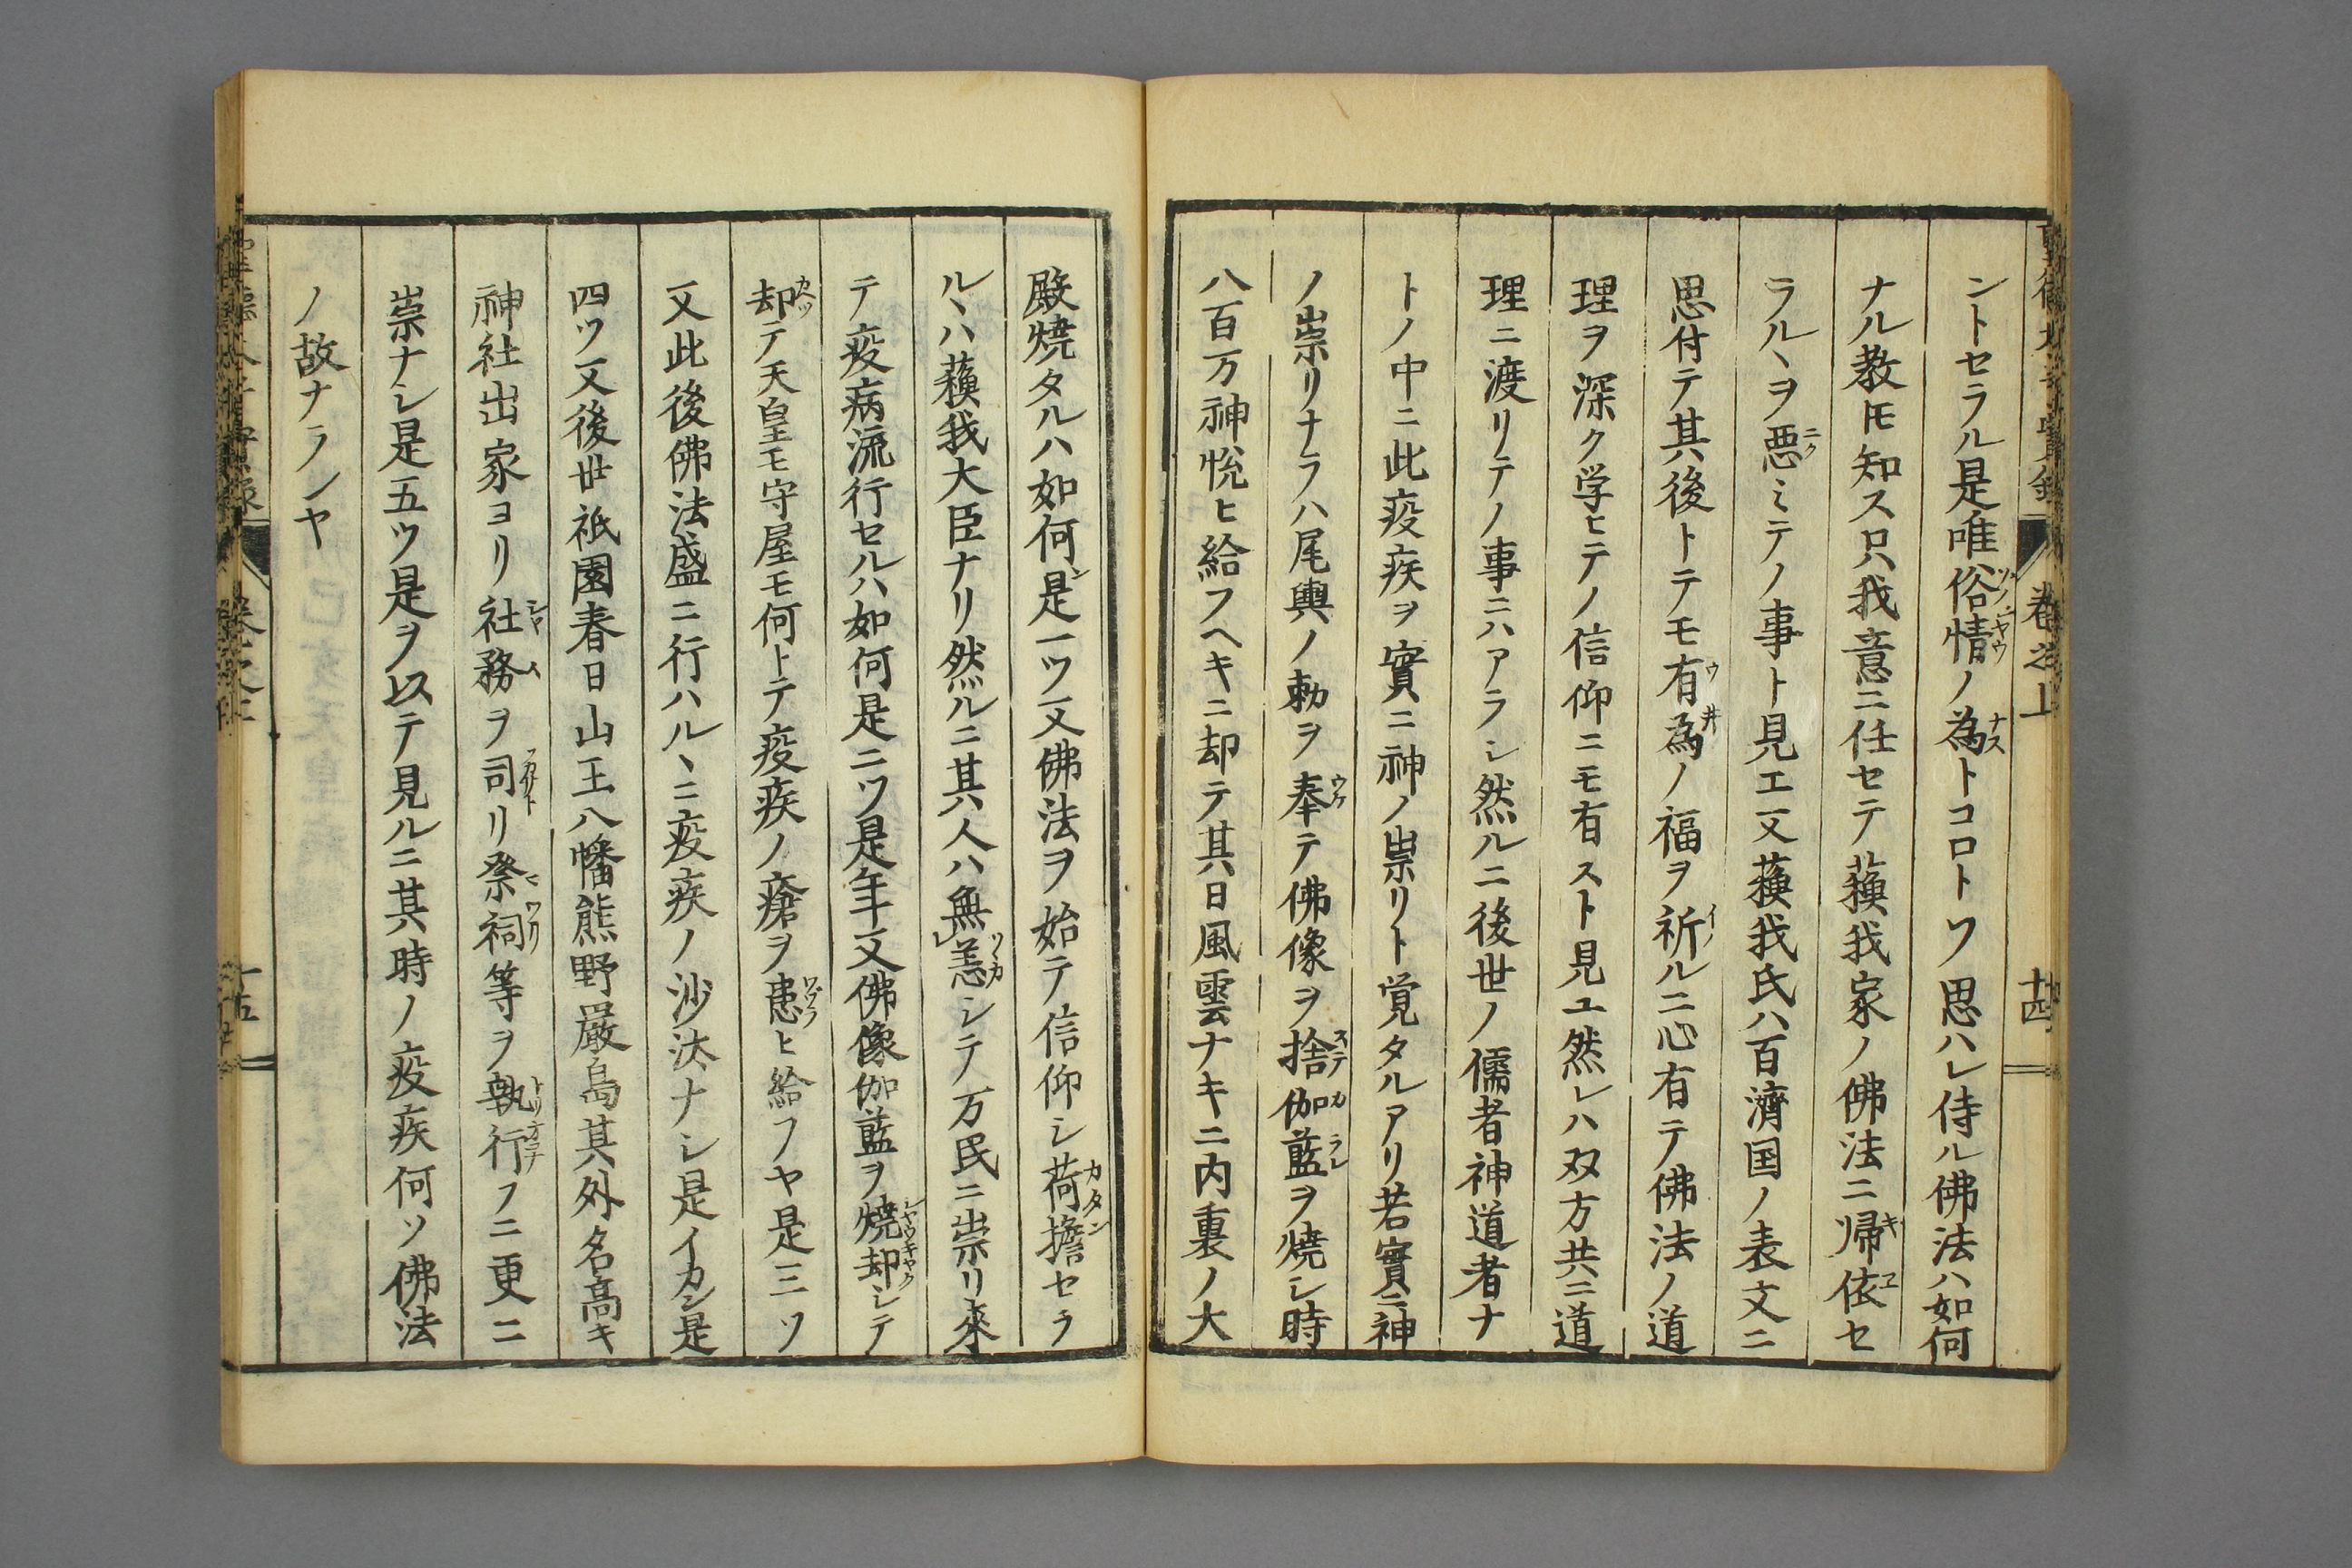 ントセラル是唯俗情ノ為トコロトワ思ハレ侍ル佛法ハ如何
ナル教トモ知ス只我意ニ任セテ蘓我家ノ佛法ニ帰依セ
ラルヽヲ悪ミテノ事ト見エ又蘓我氏ハ百濟国ノ表文ニ
思付テ其後トテモ有為ノ福ヲ祈ルニ心有テ佛法ノ道
理ヲ深ク学ヒテノ信仰ニモ有スト見ユ然レハ双方共ニ道
理ニ渡リテノ事ニハアラシ然ルニ後世ノ儒者神道者ナ
トノ中ニ此疫疾ヲ實ニ神ノ祟リト覚タルアリ若實ニ神
ノ祟リナラハ尾輿ノ勅ヲ奉テ佛像ヲ捨伽藍ヲ焼シ時
八百万神悦ヒ給フヘキニ却テ其日風雲ナキニ内裏ノ大
殿焼タルハ如何是一ツ又佛法ヲ始テ信仰シ荷擔セラ
ルヽハ蘓我大臣ナリ然ルニ其人ハ無恙シテ万民ニ祟リ來
テ疫病流行セルハ如何是二ツ是年又佛像伽藍ヲ焼却シテ
却テ天皇モ守屋モ何トテ疫疾ノ瘡ヲ患ヒ給フヤ是三ツ
又此後佛法盛ニ行ハルヽニ疫疾ノ沙汰ナシ是イカン是
四ツ又後世祇園春日山王八幡熊野嚴島其外名高キ
神社出家ヨリ社務ヲ司リ祭祠等ヲ執行フニ更ニ
祟ナシ是五ツ是ヲ以テ見ルニ其時ノ疫疾何ソ佛法
ノ故ナランヤ
卷之上
十四
十五